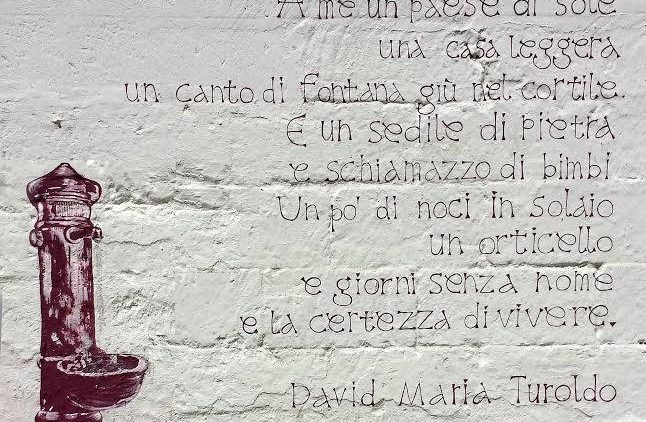 A me un paese di sole
una casa leggera
un canto di fontana giù nel cortile.
E un sedile di pietra
e schiamazzo di bimbi
Un po' di noci in solaio
un orticello
e giorni senza nome
e la certezza di vivere.
David Maria Turoldo